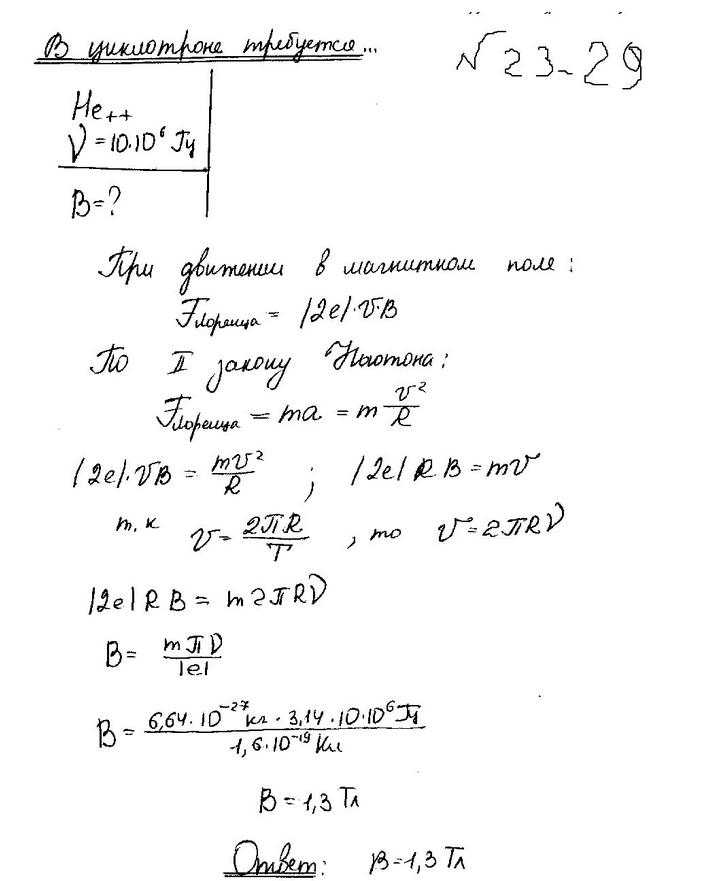 В циклотроне требуется...
№ 23-29
He++
ν = 10·10⁶ Гц
B = ?
При движении в магнитном поле:
Fлоренца = |2e|·v·B
По II закону Ньютона:
Fлоренца = ma = m v²/R
|2e|·vB = mv²/R ; |2e|RB = mv
т.к v = 2πR/T , то v = 2πRν
|2e|RB = m2πRν
B = mπν/|e|
B = 6,64·10⁻²⁷кг · 3,14·10·10⁶Гц/1,6·10⁻¹⁹Кл
B = 1,3 Тл
Ответ: B = 1,3 Тл